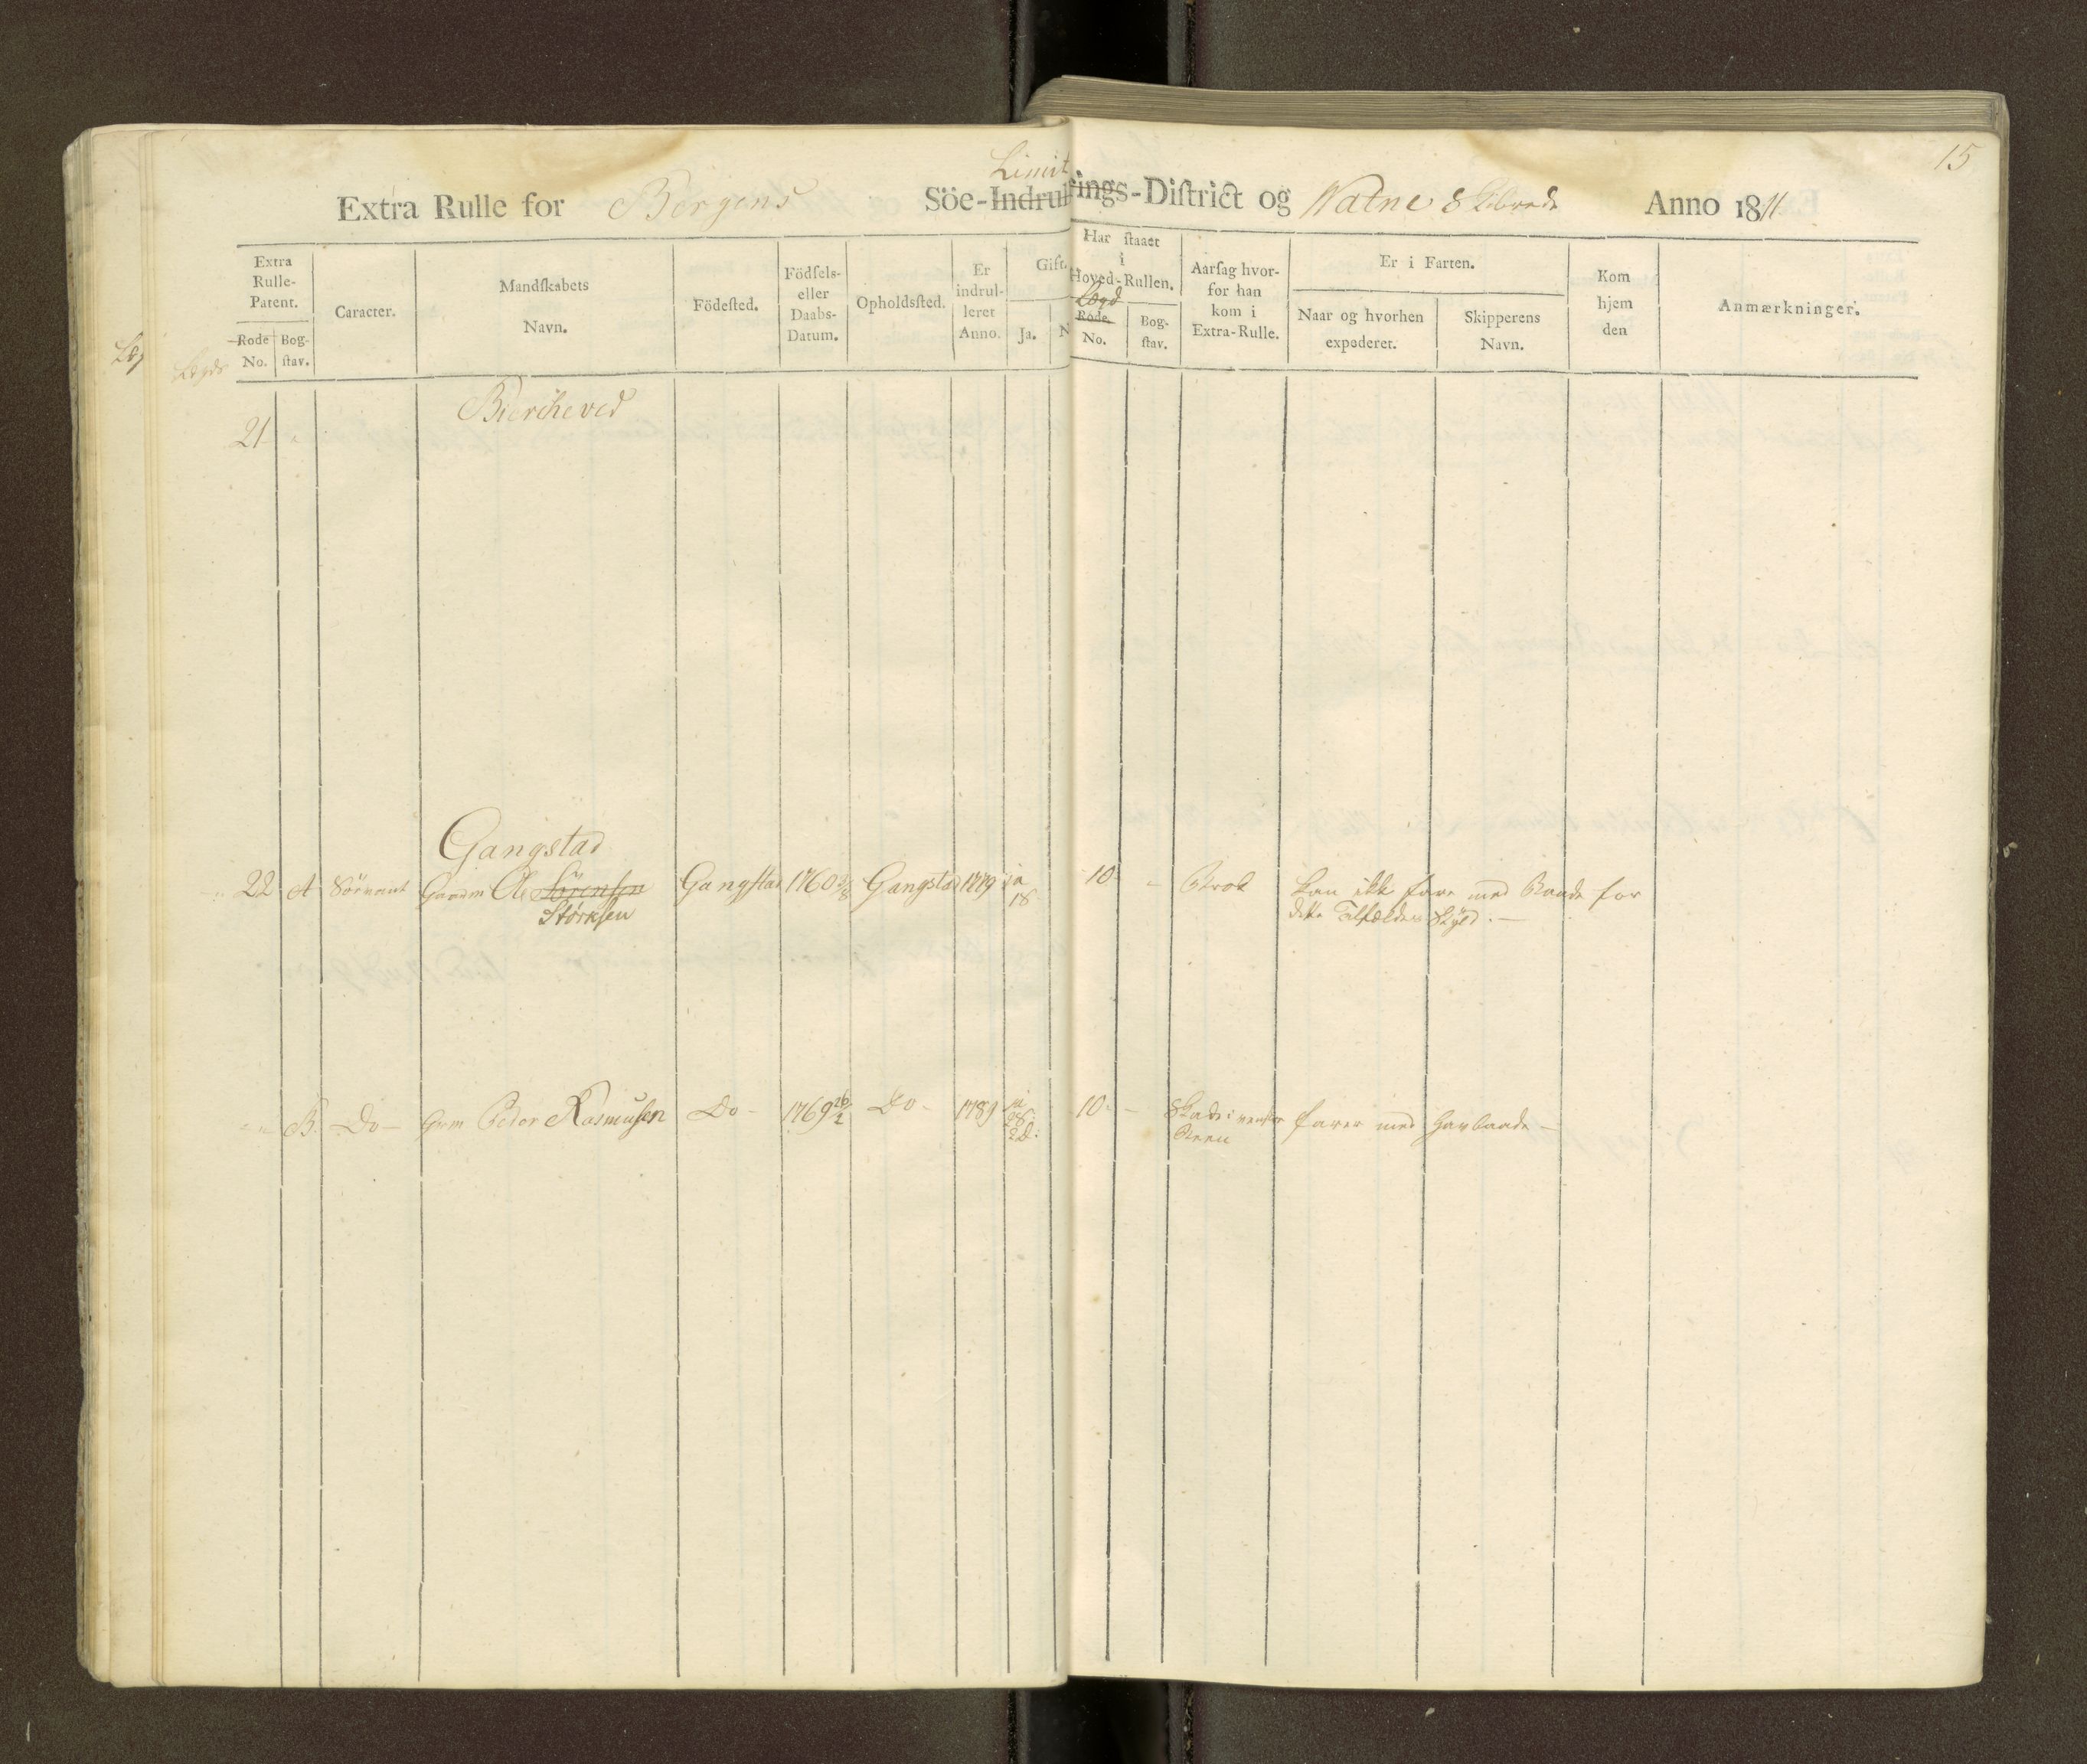 15
Limit
Extra Rulle for Bergens Söe-Indrulerings-Diſtrict og Watne Skibrede Anno 1811
Extra Rulle-Patent.
Lægds
Rode No.
Bog-ſtav.
Caracter.
Mandſkabets Navn.
Födeſted.
Födſels- eller Daabs-Datum.
Opholdsſted.
Er indrulleret Anno.
Gift.
Ja.
N
Har ſtaaet i Hoved-Rullen.
Lægd
Rode. No.
Bog-ſtav.
Aarſag hvor-for han kom i Extra-Rulle.
Er i Farten.
Naar og hvorhen expederet.
Skipperens Navn.
Kom hjem den
Anmærkninger.
Læg
Biercheved
21
Gangstad
22 A Söevant Gaardm Ole Sörensen Gangſtad 1760 3/8 Gangstad 1779 ja 18 10 - Brok Kan ikke fare med Baade for
Störkſen dette Tilfældes Skÿld. —
B. Do — Grm Peder Rasmuſen Do - 1769 26/2 Do - 1789 ja 28 2 d: 10 - Skade i venster farer med Havbaade —
Been